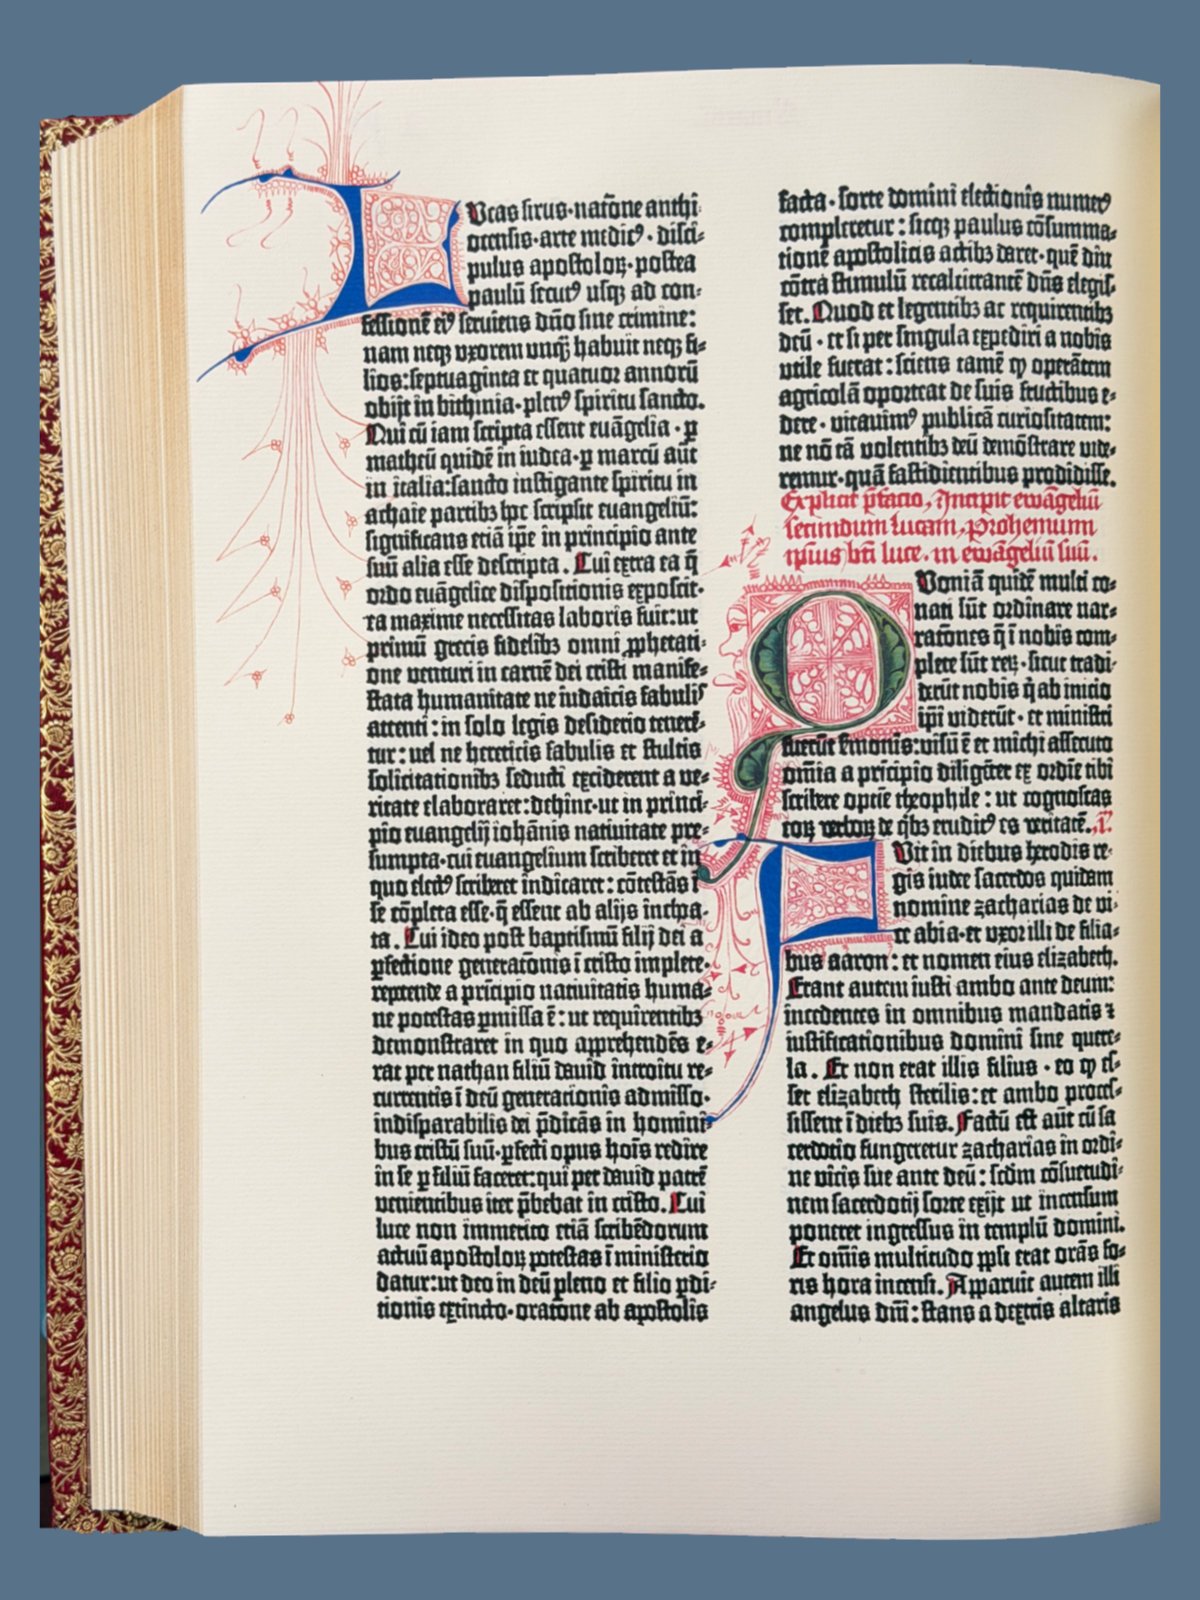 LUcas sirus·natōne anthi-
ocensis·arte medicꝰ·disci-
pulus apostoloꝝ·postea
paulū secutꝰ usqꝫ ad con-
fessionē eiꝰ seruiens dn̄o sine crimine:
nam neqꝫ vxorem vnq̄ʒ habuit neqꝫ fi-
lios:septuaginta et quatuor annorū
obijt in bithinia·plenꝰ spiritu sancto.
Qui cū iam scripta essent euāgelia·ꝑ
matheū quidē in iudea·ꝑ marcū aūt
in italia:sancto instigante spiritu in
achaie partibꝫ hoc scripsit euangeliū:
significans etiā ip̄e in principio ante
suū alia esse descripta. Cui extra ea q̄
ordo euāgelice dispositionis exposcit·
ea maxime necessitas laboris fuit:ut
primū grecis fidelibꝫ omni ꝓphetati-
one venturi in carnē dei cristi manife-
stata humanitate ne iudaicis fabulis
attenti:in solo legis desiderio tenerē-
tur:uel ne hereticis fabulis et stultis
solicitationibꝫ seducti exciderent a ve-
ritate elaboraret:dehinc·ut in princi-
pio euangelij iohānis natiuitate pre-
sumpta·cui euangelium scriberet et in
quo electꝰ scriberet indicaret:cōtestās ī
se cōpleta esse·q̄ essent ab alijs inchoa-
ta. Cui ideo post baptismū filij dei a
ꝑfectione generatōnis ī cristo implete·
repetende a principio natiuitatis huma-
ne potestas ꝑmissa ē:ut requirentibꝫ
demonstraret in quo apprehendēs e-
rat per nathan filiū dauid introitu re-
currentis ī deū generationis admisso·
indisparabilis dei p̄dicās in homini-
bus cristū suū·ꝑfecti opus hoīs redire
in se ꝑ filiū faceret:qui per dauid patrē
venientibus iter p̄bebat in cristo. Cui
luce non immerito etiā scribēdorum
actuū apostoloꝝ potestas ī ministerio
datur:ut deo in deū pleno et filio ꝓdi-
tionis extincto·oratōne ab apostolis
facta·sorte domini electionis numerꝰ
compleretur:sicqꝫ paulus cōsumma-
tionē apostolicis actibꝫ daret·quē diu
cōtra stimulū recalcitrantē dn̄s elegis-
set. Quod et legentibꝫ ac requirentibꝫ
deū·et si per singula expediri a nobis
vtile fuerat:sciens tamē ꝙ operātem
agricolā oporteat de suis fructibus e-
dere·vitauimꝰ publicā curiositatem:
ne nō tā volentibꝫ deū demōstrare vide-
remur·quā fastidientibus prodidisse.
Explicit p̄facio, Incipit ewāgeliū
secundum lucam, prohemium
ipsius bt̄i luce. in ewāgeliū suū.
QUoniā quidē multi co-
nati sūt ordinare nar-
ratōnes q̄ ī nobis com-
plete sūt reꝝ·sicut tradi-
derūt nobis q̇ ab inicio
ip̄i viderūt·et ministri
fuerūt s̄monis:visū ē et michi assecuto
om̄ia a principio diligēter ex ordīe tibi
scribere optīe theophile:ut cognoscas
eoꝝ verboꝝ de q̇bꝫ eruditꝰ es veritatē. I.
FUit in diebus herodis re-
gis iudee sacerdos quidam
nomine zacharias de vi-
ce abia·et vxor illi de filia-
bus aaron:et nomen eius elizabeth.
Erant autem iusti ambo ante deum:
incedentes in omnibus mandatis ⁊
iustificationibus domini sine quere-
la. Et non erat illis filius·eo ꝙ es-
set elizabeth sterilis:et ambo proces-
sissent ī diebꝫ suis. Factū est aūt cū sa
cerdotio fungeretur zacharias in ordi-
ne vicis sue ante deū:scd̄m cōsuetudi-
nem sacerdotij sorte exijt ut incensum
poneret ingressus in templū domini.
Et om̄is multitudo pp̄li erat orās fo-
ris hora incensi. Apparuit autem illi
angelus dn̄i:stans a dextris altaris